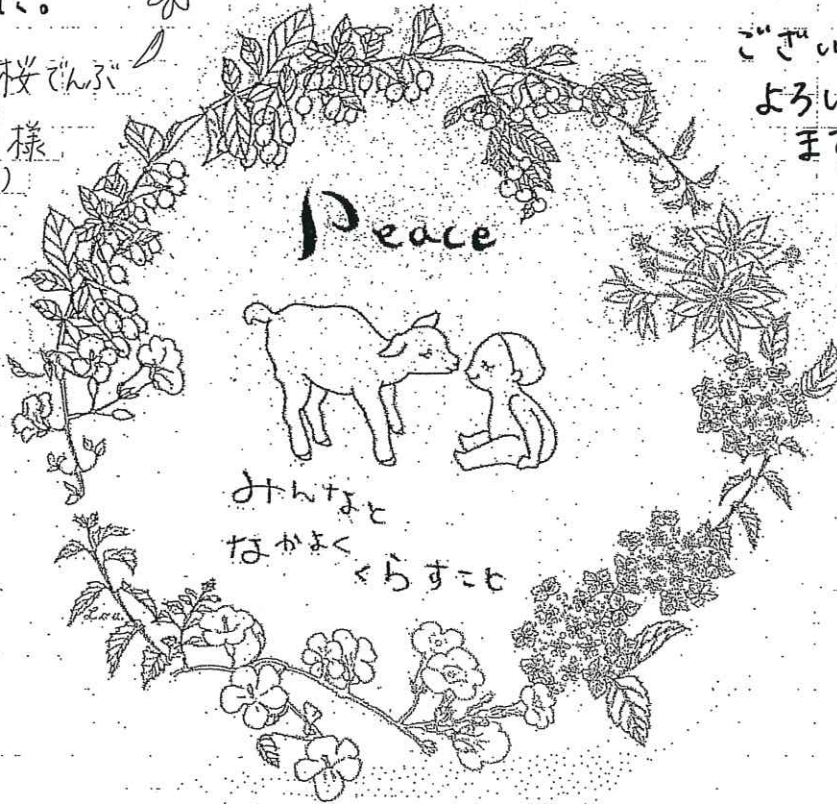 た。
桜でんぶ
様
)
ござい
よろし
ます
Peace
みんなと
なかよく
くらすこと
Lou.